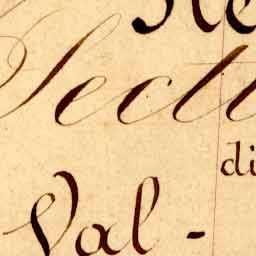 Re
Sectu
di
Val -